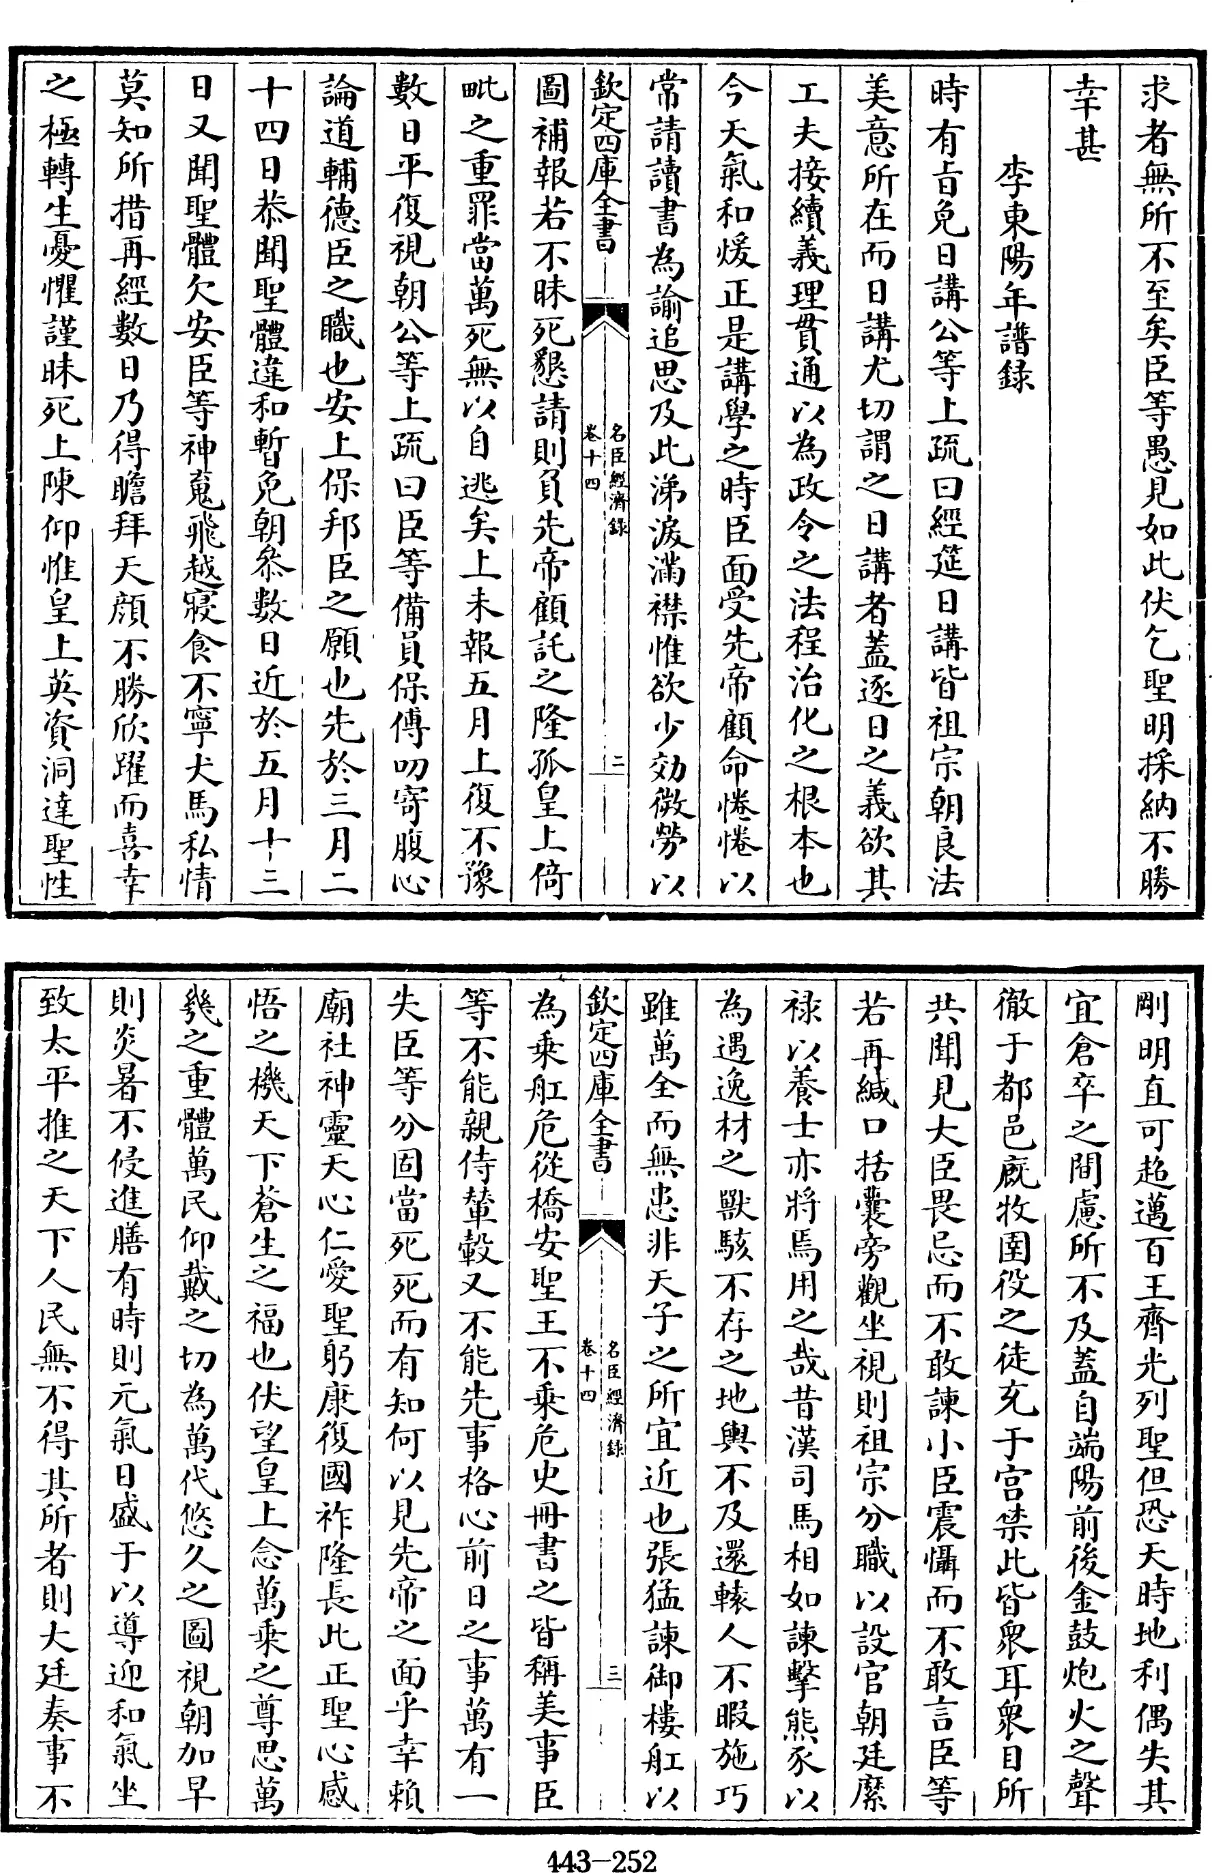 求者無所不至矣臣等愚見如此伏乞聖明採納不勝
幸甚
李東陽年譜録
時有㫖免日講公等上疏曰經筵日講皆祖宗朝良法
美意所在而日講尤切謂之日講者蓋逐日之義欲其
工夫接續義理貫通以為政令之法程治化之根本也
今天氣和煖正是講學之時臣面受先帝顧命惓惓以
常請讀書為諭追思及此涕淚滿襟惟欲少効微勞以
欽定四庫全書
名臣經濟録
卷十四
二
圖補報若不昧死懇請則負先帝顧託之隆孤皇上倚
毗之重罪當萬死無以自逃矣上未報五月上復不豫
數日平復視朝公等上疏曰臣等備員保傅叨寄腹心
論道輔德臣之職也安上保邦臣之願也先於三月二
十四日恭聞聖體違和暫免朝叅數日近於五月十三
日又聞聖體欠安臣等神䰟飛越寢食不寧犬馬私情
莫知所措再經數日乃得瞻拜天顔不勝欣躍而喜幸
之極轉生憂懼謹昧死上陳仰惟皇上英資洞達聖性
剛明直可超邁百王齊光列聖但恐天時地利偶失其
宜倉卒之間慮所不及蓋自端陽前後金鼓炮火之聲
徹于都邑廐牧圉役之徒充于宫禁此皆衆耳衆目所
共聞見大臣畏忌而不敢諫小臣震懾而不敢言臣等
若再緘口括囊旁觀坐視則祖宗分職以設官朝廷縻
禄以養士亦將焉用之哉昔漢司馬相如諫擊熊豕以
為遇逸材之獸駭不存之地輿不及還轅人不暇施巧
雖萬全而無患非天子之所宜近也張猛諫御樓舡以
欽定四庫全書
名臣經濟録
卷十四
三
為乘舡危從橋安聖王不乘危史冊書之皆稱美事臣
等不能親侍輦轂又不能先事格心前日之事萬有一
失臣等分固當死死而有知何以見先帝之面乎幸賴
廟社神靈天心仁愛聖躬康復國祚隆長此正聖心感
悟之機天下蒼生之福也伏望皇上念萬乘之尊思萬
幾之重體萬民仰戴之切為萬代悠久之圖視朝加早
則炎暑不侵進膳有時則元氣日盛于以導迎和氣坐
致太平推之天下人民無不得其所者則大廷奏事不
443-252